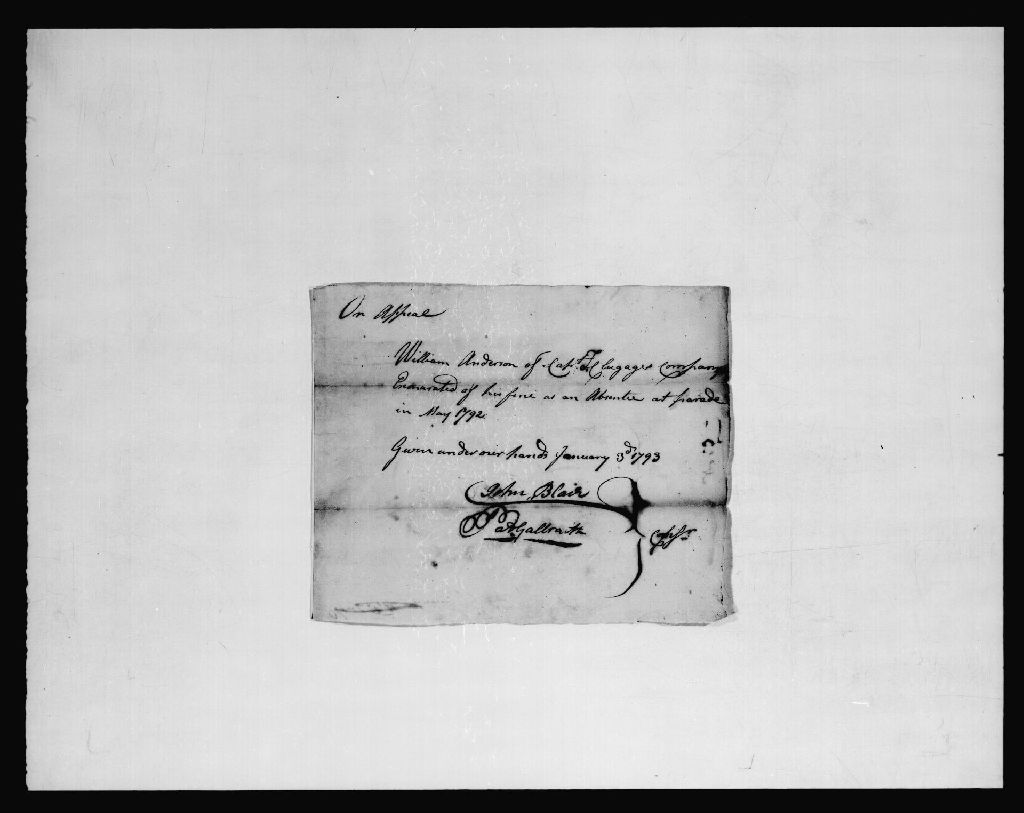 On Appeal
William Anderson of Capt. Clugages company
Exonerated of his fine as an Absentee at parade
in May 1792
Given under our hands January 3d 1793
John Blair
Pat Galbraith
Capts